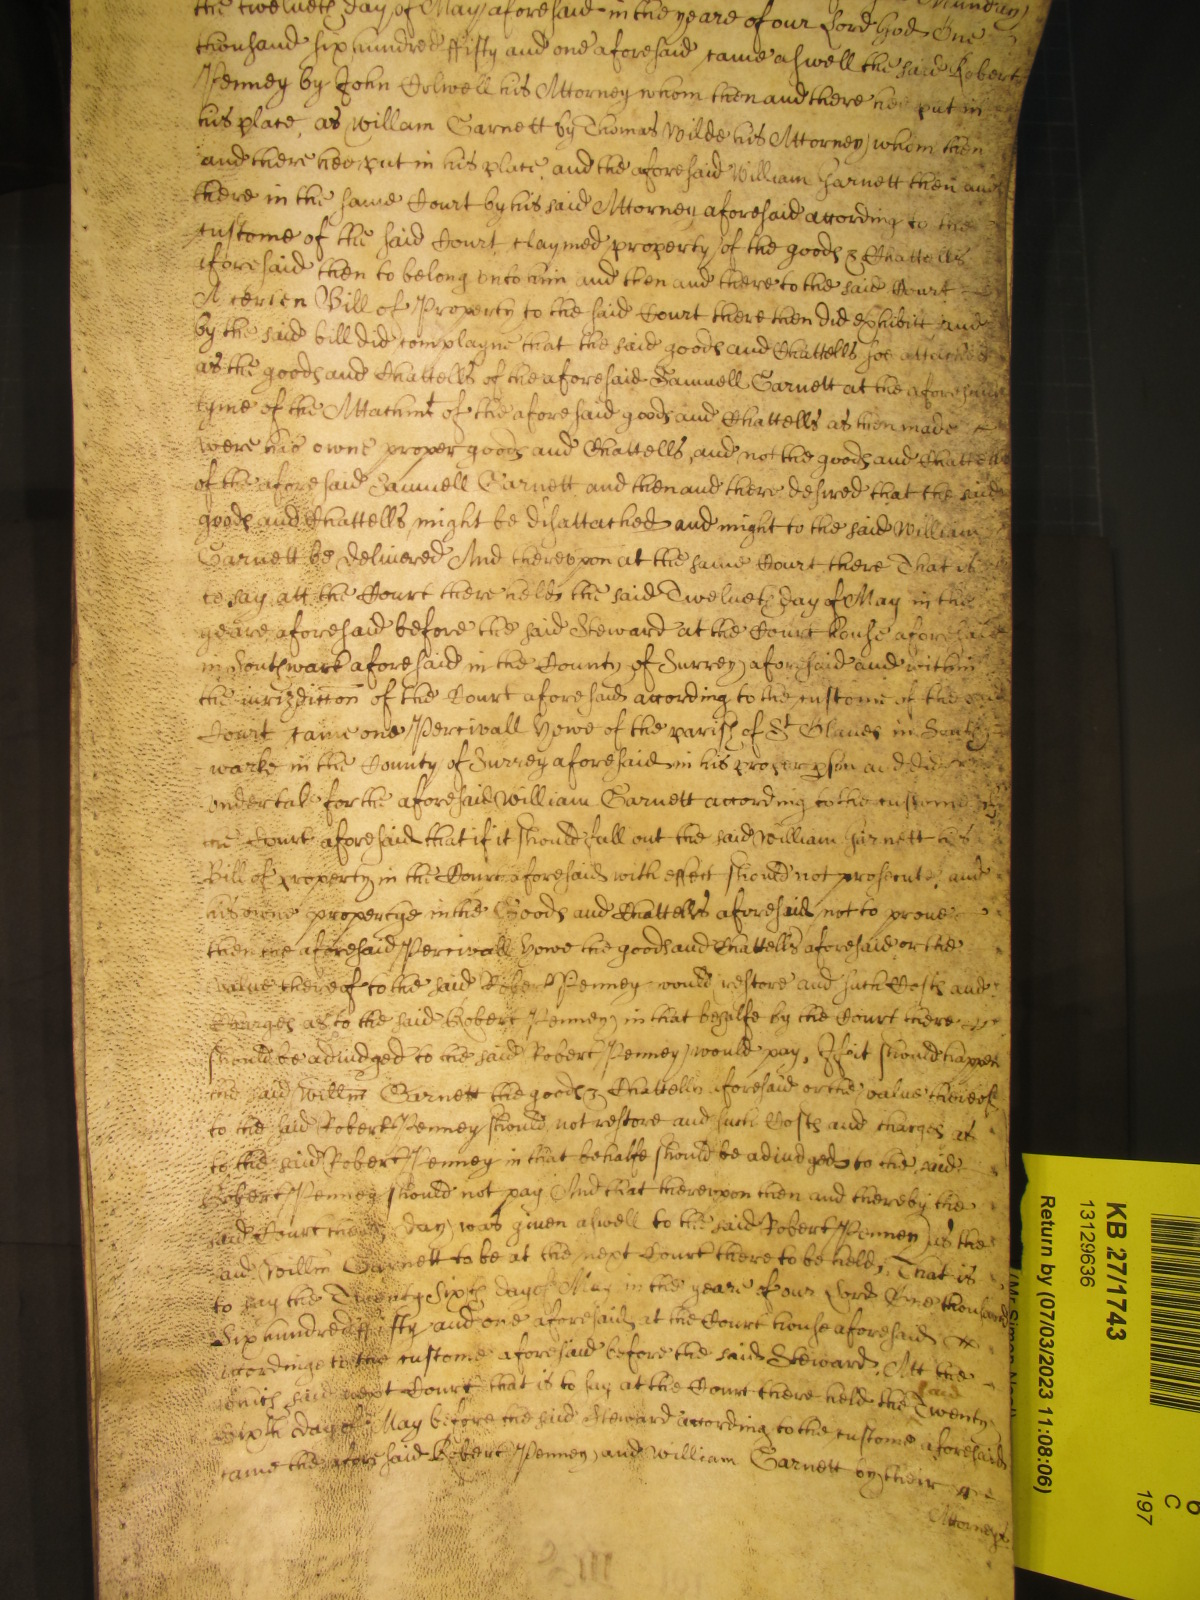 the twelueth day of May aforesaid in the yeare of our Lord God One
thousand six hundred ffifty and one aforesaid came aswell the said Robert
Penney by John Colwell his Attorney whom then and there hee put in
his place, as William Garnett by Thomas Wilde his Attorney whom then
and there hee put in his place, and the aforesaid William Garnett then and
there in the same Court by his said Attorney aforesaid according to the
custome of the said Court claymed property of the goods & Chattells
aforesaid then to belong vnto him and then and there to the said Court
A certen Bill of Property to the said Court there then did exhibitt and
by the said bill did complayne that the said goods and Chattells soe attached
as the goods and Chattells of the aforesaid Samuell Garnett at the aforesaid
tyme of the Attachmt of the aforesaid goods and Chattells as then made
were his owne proper goods and Chattells, and not the goods and Chattells
of the aforesaid Samuell Garnett and then and there desired that the said
goods and Chattells might be disattached and might to the said William
Garnett be deliuered And therevpon at the same Court there That is
to say att the Court there held the said Twelueth day of May in the
yeare aforesaid before the said Steward at the Court house aforesaid
in Southwark aforesaid in the County of Surrey aforesaid and within
the iurisdiccon of the Court aforesaid according to the custome of the said
Court came one Percivall Howe of the parish of St Olaues in South
warke in the County of Surrey aforesaid in his proper pson and did
vndertake for the aforesaid William Garnett according to the custome of
the Court aforesaid that if it should fall out the said William Garnett his
Bill of property in the Court aforesaid with effect should not prosecute, and
his owne propertye in the Goods and Chattells aforesaid not to proue
then the aforesaid Percivall Howe the goods and Chattells aforesaid or the
value thereof to the said Robert Penney would restore and such Costs and
Charges as to the said Robert Penney in that behalfe by the Court there
should be adiudged to the said Robert Penney would pay, If it should happen
the said Willm Garnett the goods & Chattells aforesaid or the value thereof
to the said Robert Penney should not restore and such Costs and charges as
to the said Robert Penney in that behalfe should be adiudged to the said
Robert Penney should not pay And that therevpon then and thereby the
said Court there day was given aswell to the said Robert Penney as the
said Willm Garnett to be at the next Court there to be held, That is
to say the Twenty Sixth day of May in the yeare of our Lord One thousand
Six hundred ffifty and one aforesaid at the Court house aforesaid
accordinge to the custome aforesaid before the said Steward, Att the
which said next Court that is to say at the Court there held the said Twenty
Sixth day of May before the said Steward according to the custome aforesaid
came the aforesaid Robert Penney and William Garnett by their
Attorneys
KB 27/1743
13129636
Return by (07/03/2023 11:08:06)
C
197